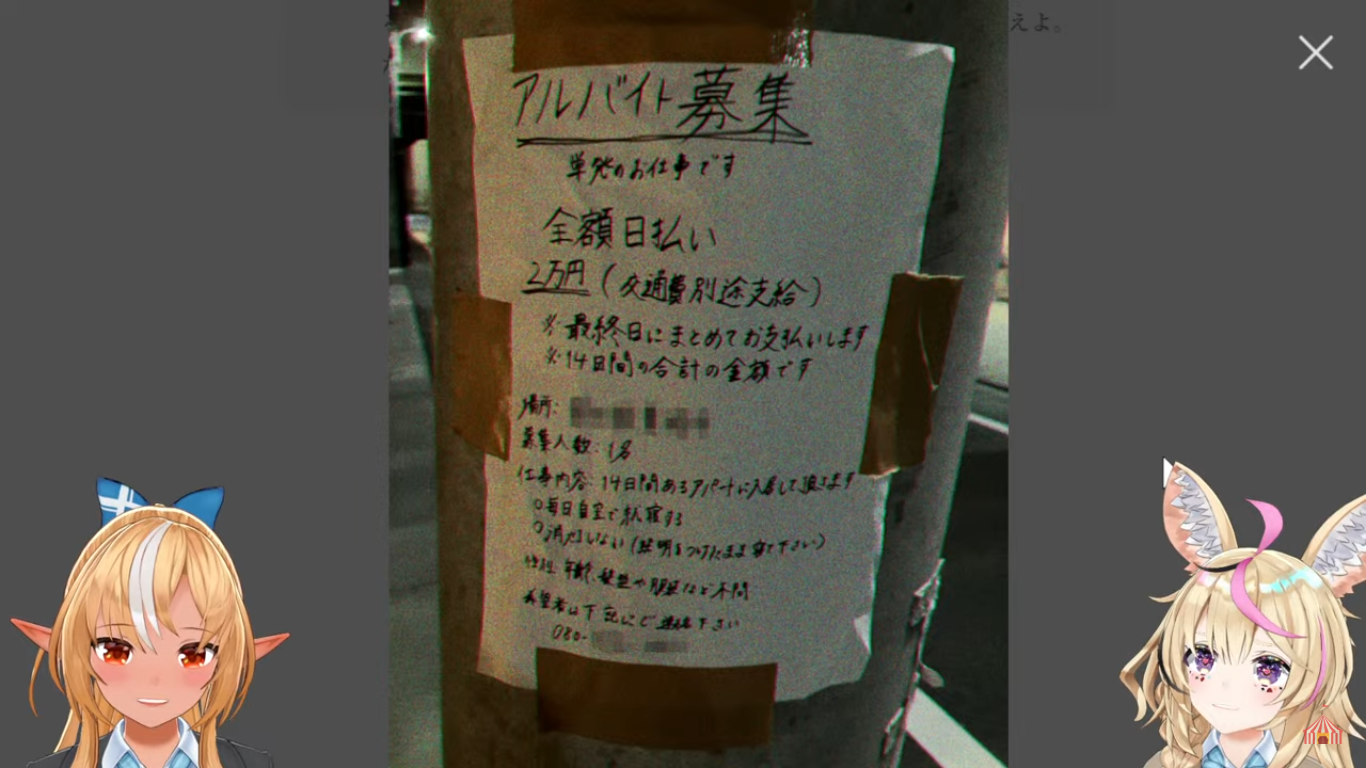 えよ。
アルバイト募集
単発のお仕事です
全額日払い
2万円(交通費別途支給)
※最終日にまとめてお支払いします
※14日間の合計の金額です
場所:
募集人数:1名
仕事内容:14日間あるアパートに入居して頂きます
○毎日自室で就寝する
○消灯しない(照明をつけたまま寝て下さい)
性別、年齢、髪型や服装など不問
希望者は下記にご連絡下さい
080-